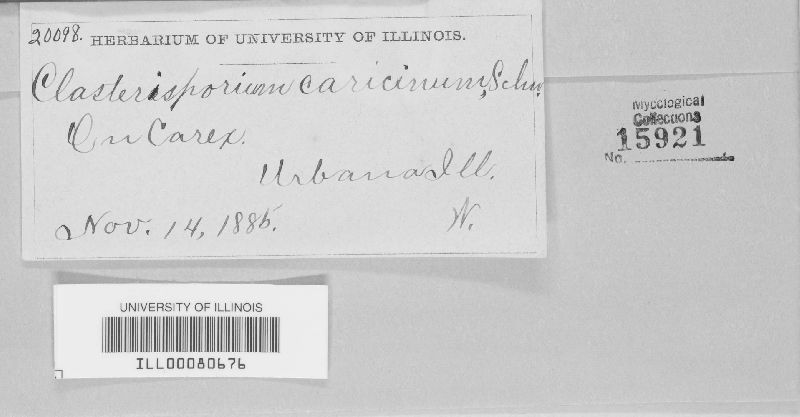 20098. HERBARIUM OF UNIVERSITY OF ILLINOIS.
Clasterisporium caricinum, Schw.
On Carex.
Urbana Ill.
Nov. 14, 1885.
W.
Mycological
Collections
15921
No.
UNIVERSITY OF ILLINOIS
ILL00080676